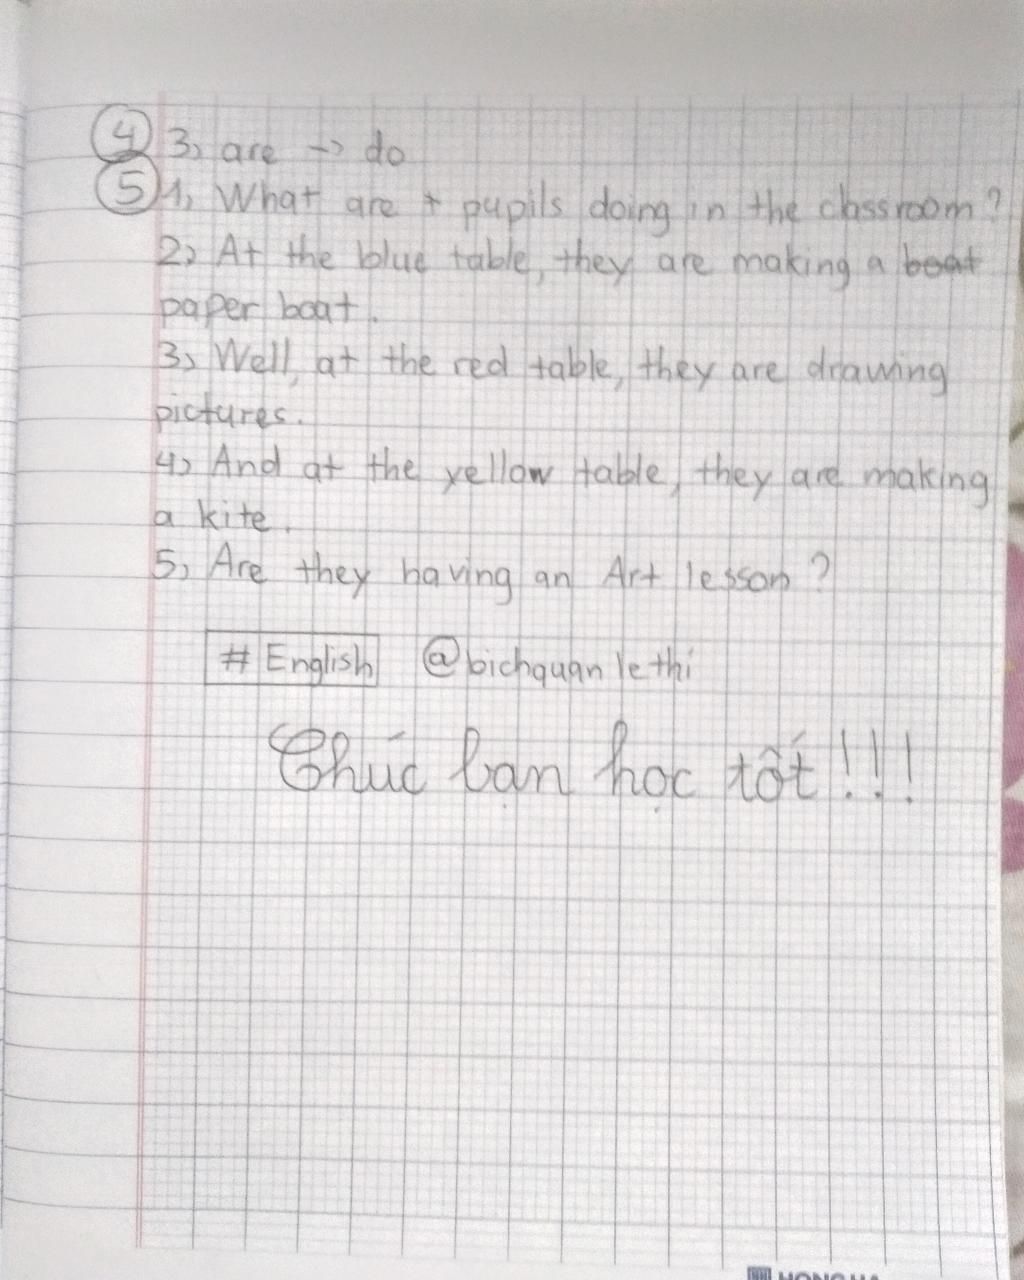 4 3, are -> do
5 1, What are pupils doing in the classroom?
2, At the blue table, they are making a boat
paper boat.
3, Well, at the red table, they are drawing
pictures.
4, And at the yellow table, they are making
a kite.
5, Are they having an Art lesson?
# English @bichquanlethi
Chúc bạn học tốt!!!